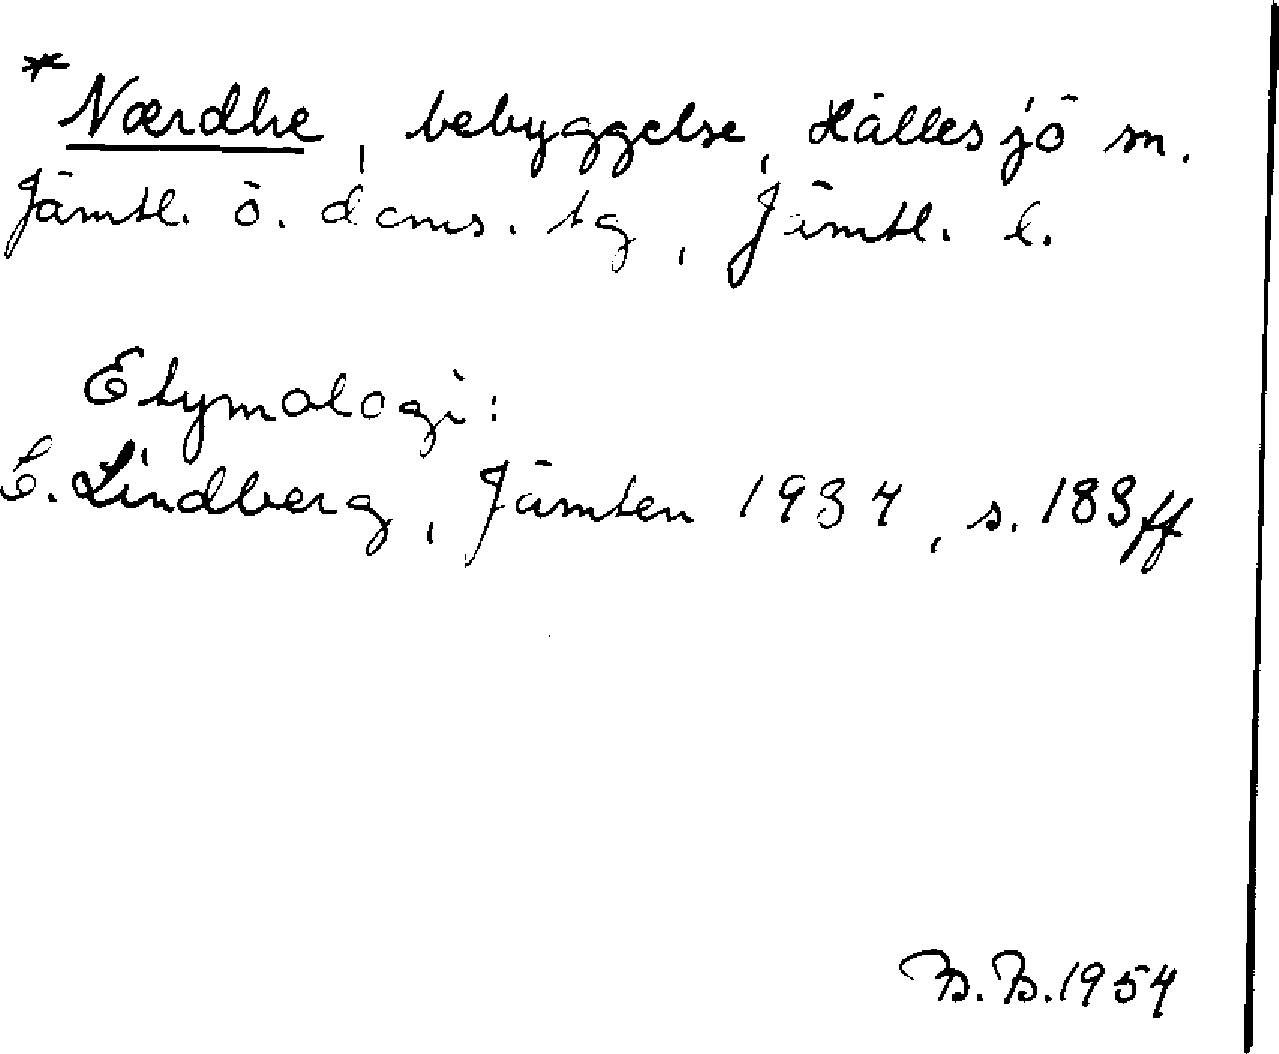 *Nærdhe, bebyggelse, Hällesjö sn.
Jämtl. ö. doms. tg, Jämtl. l.
Etymologi:
C. Lindberg, Jämten 1934, s. 183 ff
B.B. 1954